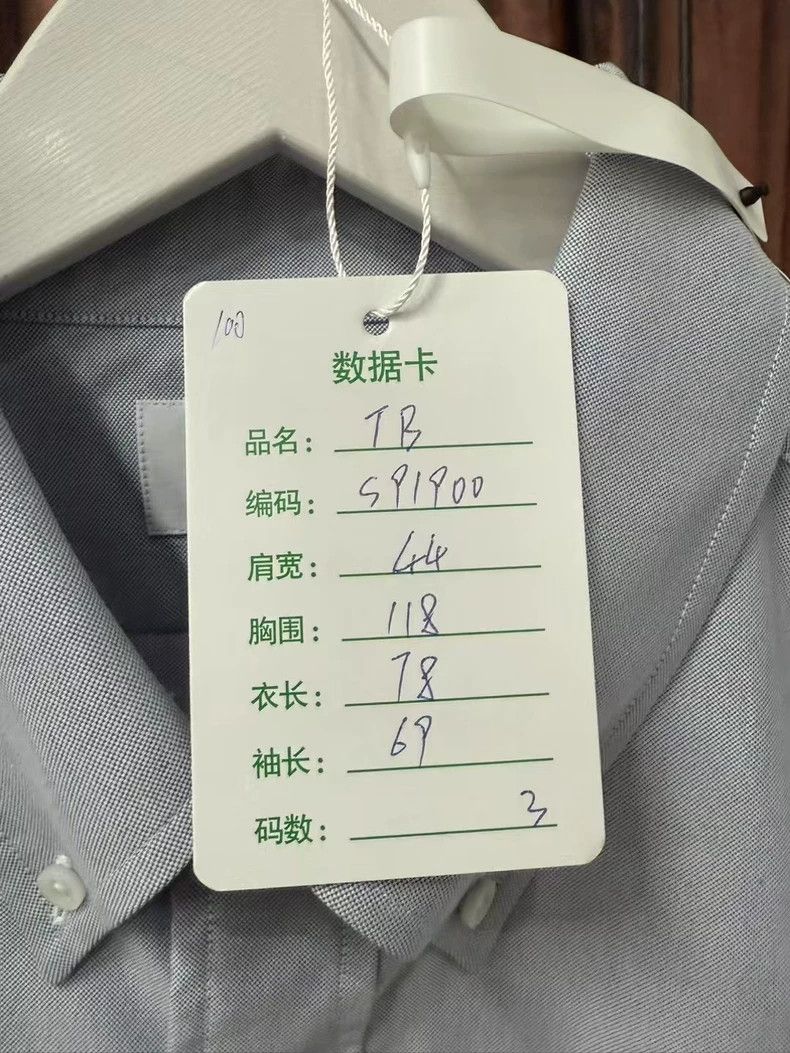 100
数据卡
品名： TB
编码： S91900
肩宽： 44
胸围： 118
衣长： 78
袖长： 69
码数： 3